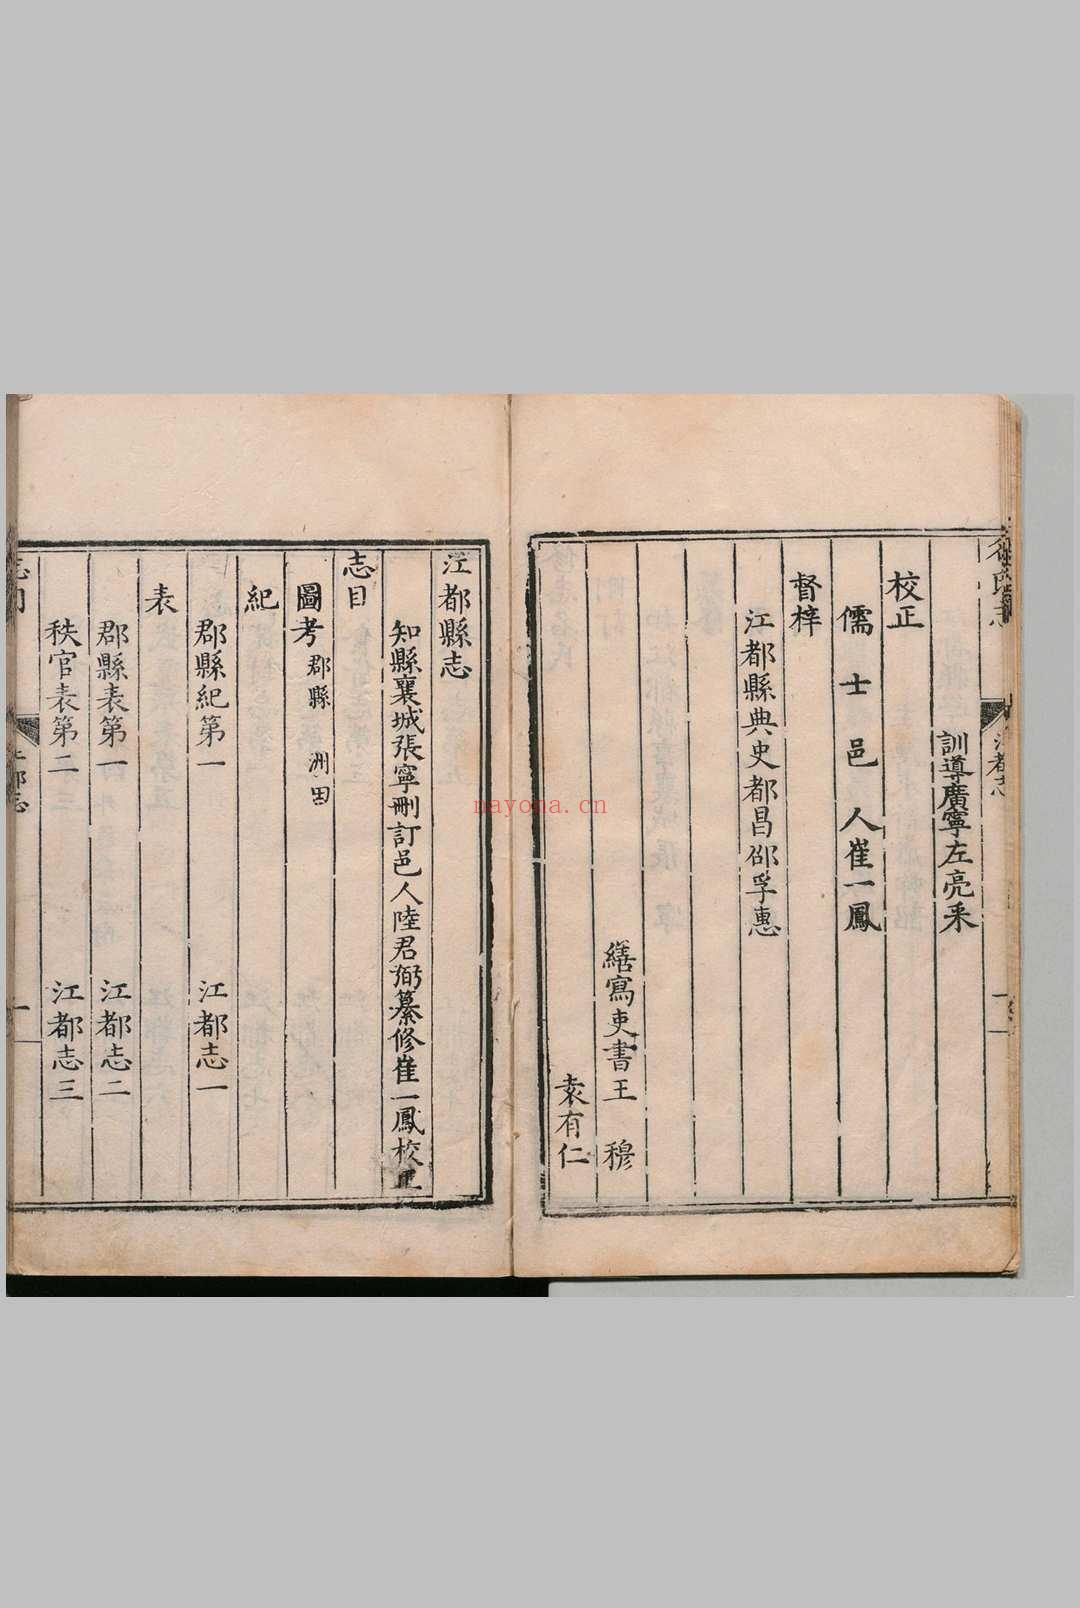 訓導廣寧左亮采
校正
儒士邑人崔一鳳
督梓
江都縣典史都昌邵孚惠
繕寫吏書王　穆
袁有仁
江都志
一
江都縣志
知縣襄城張寧刪訂邑人陸君弼纂修崔一鳳校正
志目
圖考 郡縣 洲田
紀
郡縣紀第一 江都志一
表
郡縣表第一 江都志二
秩官表第二 江都志三
一
nayona.cn